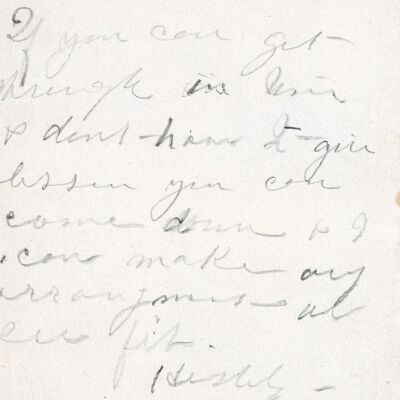 If you can get
through in time
& dont have to give
lesson you can
come down & I
can make any
arrangment
see fit.
Hastily -